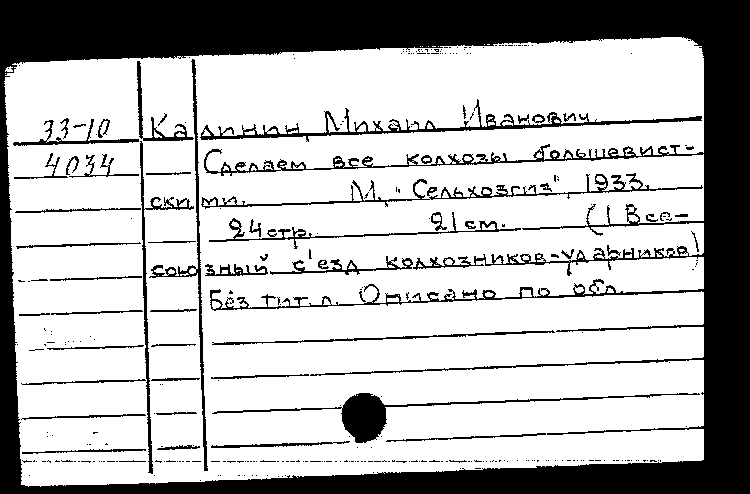 33-10 Калинин, Михаил Иванович.
4034 Сделаем все колхозы большевист-
скими. М., "Сельхозгиз", 1933.
24 стр. 21 см. (1 Все-
союзный с'езд колхозников-ударников)
Без тит. л. Описано по обл.